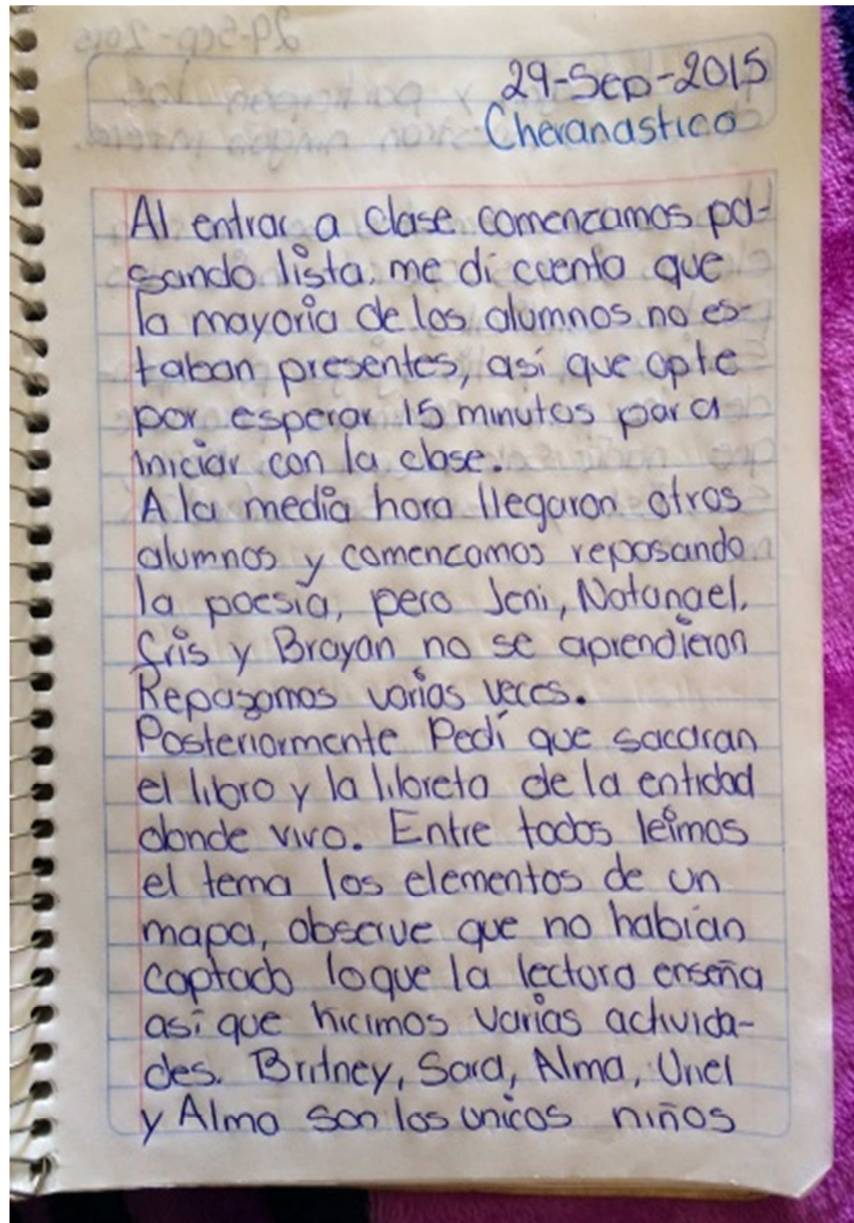 29-Sep-2015
Cheranastico
Al entrar a clase comenzamos pa-
sando lista, me di cuenta que
la mayoria de los alumnos no es-
taban presentes, así que opte
por esperar 15 minutos para
iniciar con la clase.
A la media hora llegaron otros
alumnos y comenzamos repasando
la poesía, pero Jeni, Natanael,
Cris y Brayan no se aprendieron
Repasamos varias veces.
Posteriormente Pedí que sacaran
el libro y la libreta de la entidad
donde vivo. Entre todos leimos
el tema los elementos de un
mapa, observe que no habían
captado loque la lectura enseña
así que hicimos varias activida-
des. Britney, Sara, Alma, Uriel
y Alma son los unicos niños